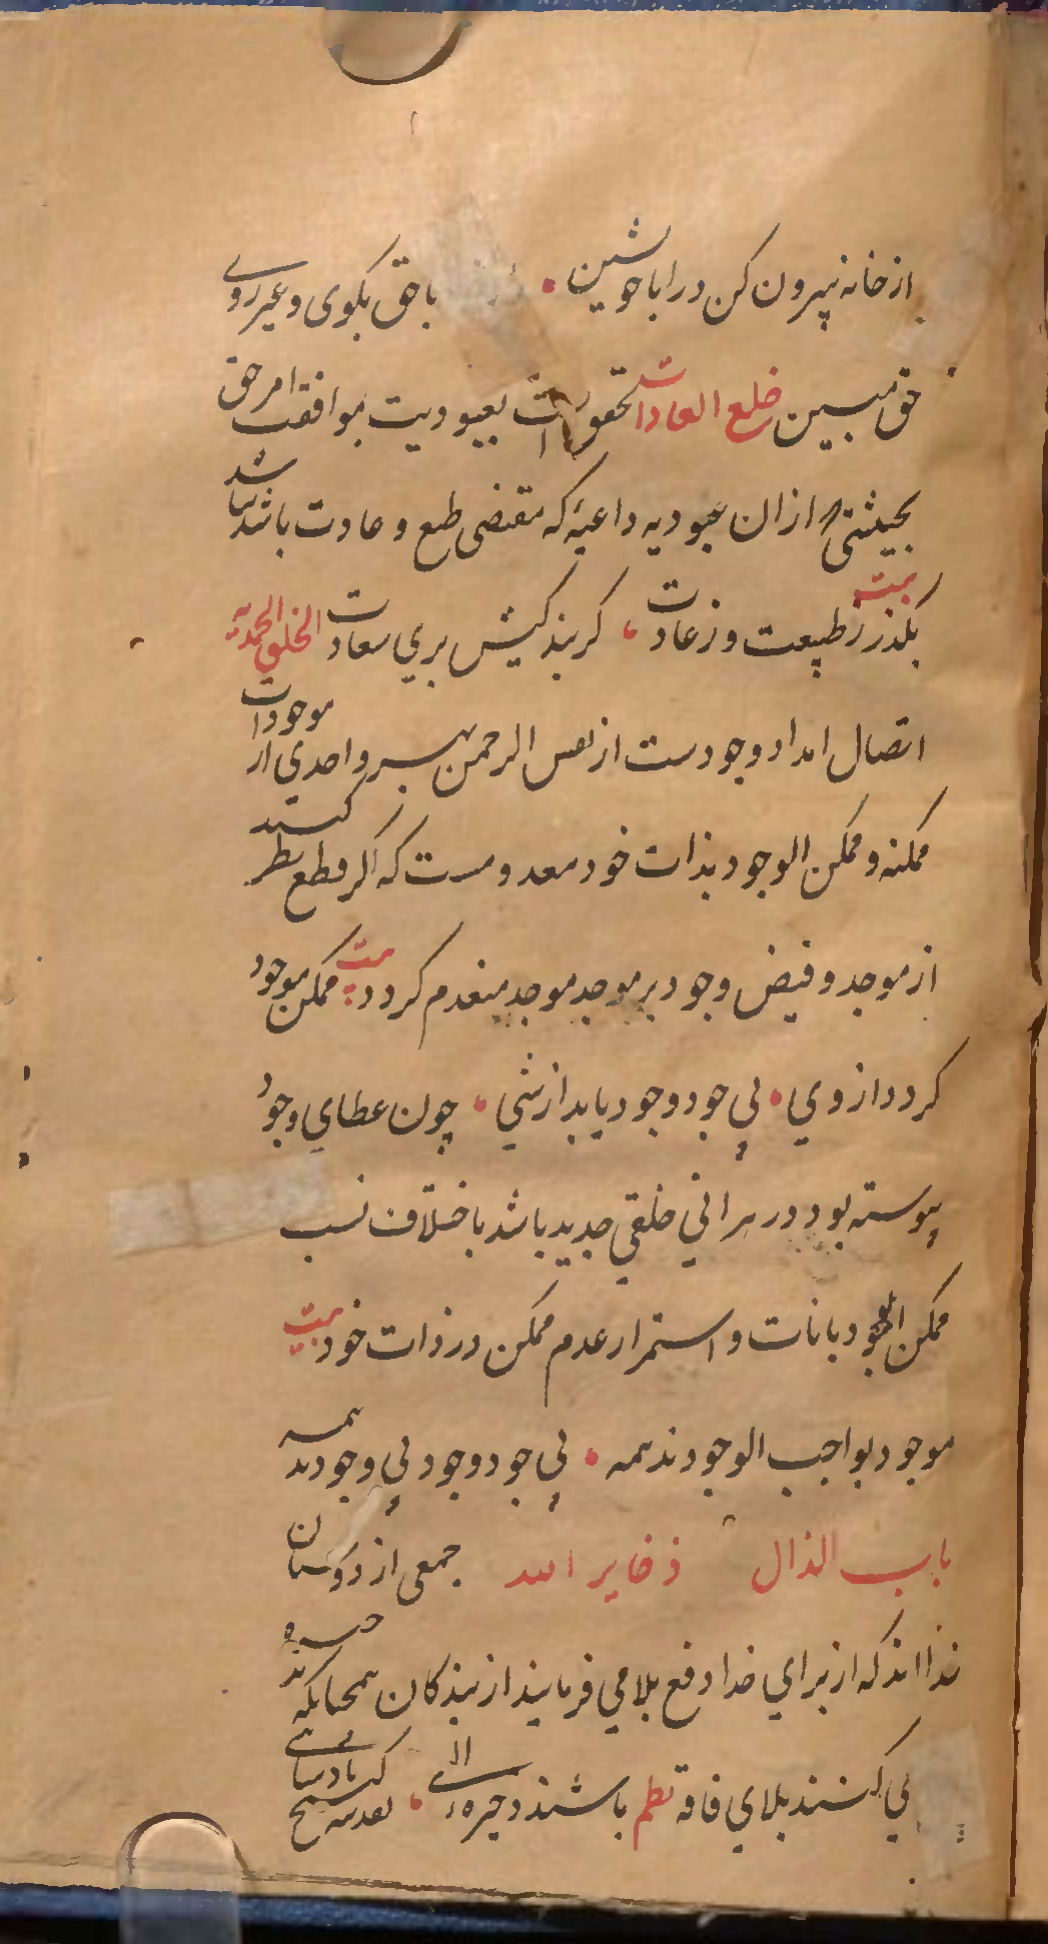 از خانه بیرون کن در ابا خو شین • با حق بکوی و غیر روی
حق مبین خلع العادات تحقق است بعبودیت بموافقت امر حق
بحیثیتی از ان عبودیه داعیهٔ که مقتضی طبع و عادت باشد نباشد
بیت بکذر ز طبیعت و ز عادت • کر بند کیش بری سعادت الخلق الجدید
اتصال امداد وجودست از نفس الرحمن بهر واحدی از موجودات
ممکنه و ممکن الوجود بذات خود معدومست که اکر قطع نظر کنند
از موجد و فیض وجود بر موجد موجد منعدم کردد بیت ممکن موجود
کردد از وی • بی جود وجود یابد از شی • چون عطای وجود
پیوسته بود در هر انی خلقی جدید باشد باختلاف نسب
ممکن الوجود بانات و استمرار عدم ممکن در ذات خود بیت
موجود بواجب الوجودند همه • بی جود وجود بی وجودند همه
باب الذال ذخایر الله جمعی از دوستان
خدا اند که از برای خدا دفع بلا می فرمایند از بندکان همچنانکه
بلای فاقه نظم باشند ذخیرهٔ الهی •